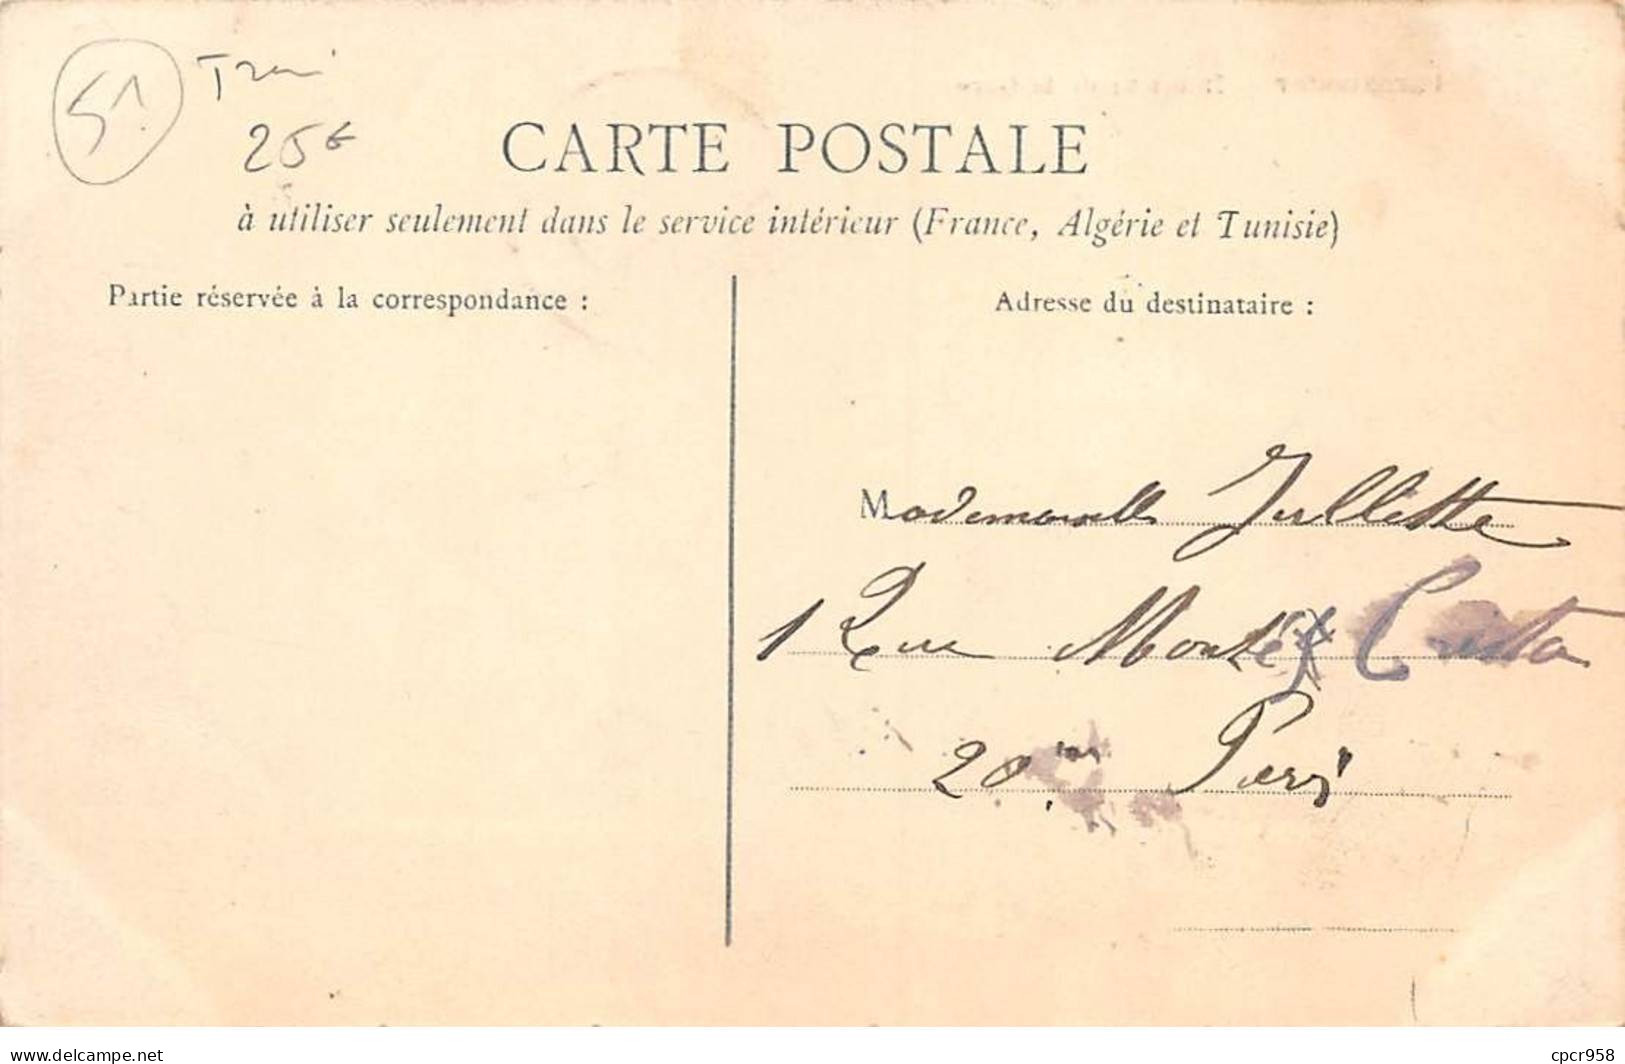 51
Train
25€
CARTE POSTALE
à utiliser seulement dans le service intérieur (France, Algérie et Tunisie)
Partie réservée à la correspondance :
Adresse du destinataire :
Mademoiselle Jullette
1 Rue Monté Cristo
20 me Paris
www.delcampe.net
cpcr958